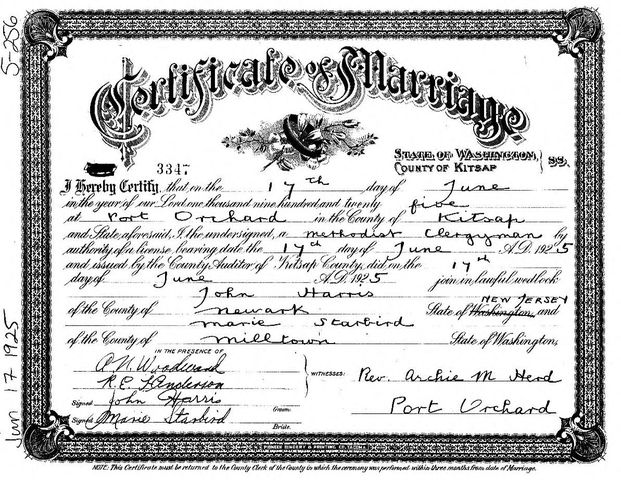 5-256
Certificate of Marriage
STATE OF WASHINGTON,
COUNTY OF KITSAP } SS.
3347
I Hereby Certify, that on the 17th day of June
in the year of our Lord one thousand nine hundred and twenty five
at Port Orchard in the County of Kitsap
and State aforesaid, I the undersigned, a methodist Clergyman by
authority of a license bearing date the 17th day of June A.D. 1925
and issued by the County Auditor of Kitsap County, did on the 17th
day of June A.D. 1925 join in lawful wedlock
John Harris
NEW JERSEY
of the County of Newark State of Washington, and
marie Starbird
of the County of Milltown State of Washington,
IN THE PRESENCE OF
A. N. Woodward
R. E. Sanderson
WITNESSES:
Rev. Archie M Herd
Signed John Harris
Groom.
Port Orchard
Signed Marie Starbird
Bride.
Jun 17 1925
NOTE: This Certificate must be returned to the County Clerk of the County in which the ceremony was performed within three months from date of Marriage.